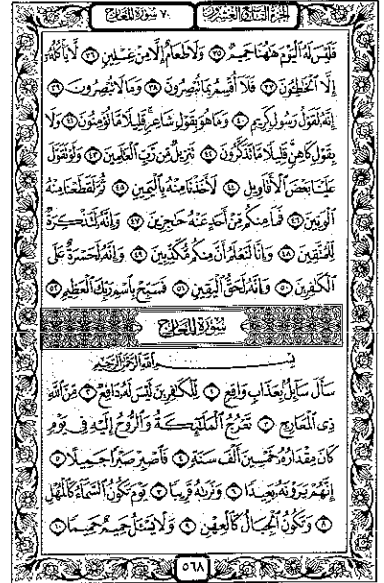 الجزء التاسع والعشرون ٧٠ سورة المعارج
فَلَيْسَ لَهُ ٱلْيَوْمَ هَٰهُنَا حَمِيمٌ ٣٥ وَلَا طَعَامٌ إِلَّا مِنْ غِسْلِينٍ ٣٦ لَّا يَأْكُلُهُۥٓ
إِلَّا ٱلْخَٰطِـُٔونَ ٣٧ فَلَآ أُقْسِمُ بِمَا تُبْصِرُونَ ٣٨ وَمَا لَا تُبْصِرُونَ ٣٩
إِنَّهُۥ لَقَوْلُ رَسُولٍ كَرِيمٍ ٤٠ وَمَا هُوَ بِقَوْلِ شَاعِرٍ قَلِيلًا مَّا تُؤْمِنُونَ ٤١ وَلَا
بِقَوْلِ كَاهِنٍ قَلِيلًا مَّا تَذَكَّرُونَ ٤٢ تَنزِيلٌ مِّن رَّبِّ ٱلْعَٰلَمِينَ ٤٣ وَلَوْ تَقَوَّلَ
عَلَيْنَا بَعْضَ ٱلْأَقَاوِيلِ ٤٤ لَأَخَذْنَا مِنْهُ بِٱلْيَمِينِ ٤٥ ثُمَّ لَقَطَعْنَا مِنْهُ
ٱلْوَتِينَ ٤٦ فَمَا مِنكُم مِّنْ أَحَدٍ عَنْهُ حَٰجِزِينَ ٤٧ وَإِنَّهُۥ لَتَذْكِرَةٌ
لِّلْمُتَّقِينَ ٤٨ وَإِنَّا لَنَعْلَمُ أَنَّ مِنكُم مُّكَذِّبِينَ ٤٩ وَإِنَّهُۥ لَحَسْرَةٌ عَلَى
ٱلْكَٰفِرِينَ ٥٠ وَإِنَّهُۥ لَحَقُّ ٱلْيَقِينِ ٥١ فَسَبِّحْ بِٱسْمِ رَبِّكَ ٱلْعَظِيمِ ٥٢
سورة المعارج
بِسْمِ ٱللَّهِ ٱلرَّحْمَٰنِ ٱلرَّحِيمِ
سَأَلَ سَآئِلٌۢ بِعَذَابٍ وَاقِعٍ ١ لِّلْكَٰفِرِينَ لَيْسَ لَهُۥ دَافِعٌ ٢ مِّنَ ٱللَّهِ
ذِى ٱلْمَعَارِجِ ٣ تَعْرُجُ ٱلْمَلَٰٓئِكَةُ وَٱلرُّوحُ إِلَيْهِ فِى يَوْمٍ
كَانَ مِقْدَارُهُۥ خَمْسِينَ أَلْفَ سَنَةٍ ٤ فَٱصْبِرْ صَبْرًا جَمِيلًا ٥
إِنَّهُمْ يَرَوْنَهُۥ بَعِيدًا ٦ وَنَرَىٰهُ قَرِيبًا ٧ يَوْمَ تَكُونُ ٱلسَّمَآءُ كَٱلْمُهْلِ
٨ وَتَكُونُ ٱلْجِبَالُ كَٱلْعِهْنِ ٩ وَلَا يَسْـَٔلُ حَمِيمٌ حَمِيمًا ١٠
٥٦٨